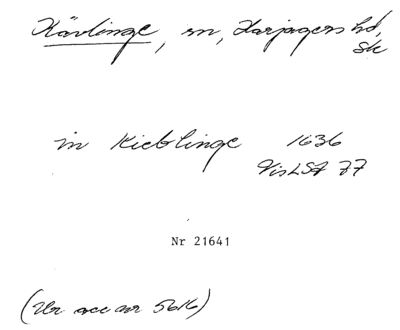 Kävlinge, sn, Harjagers hd,
Sk
in Kieblinge 1636
VisLSt 77
Nr 21641
(Ur acc nr 5616)